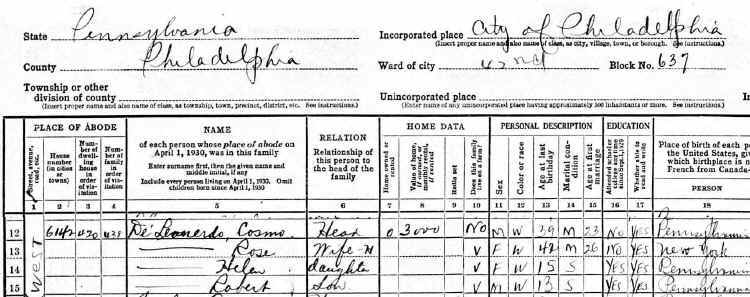 State Pennsylvania Incorporated place City of Philadelphia
(Insert proper name and also name of class, as city, village, town, or borough. See instructions.)
County Philadelphia Ward of city 42nd Block No. 637
Township or other
division of county
(Insert proper name and also name of class, as township, town, precinct, district, etc. See instructions.)
Unincorporated place
(Enter name of any unincorporated place having approximately 500 inhabitants or more. See instructions.)
PLACE OF ABODE NAME RELATION HOME DATA PERSONAL DESCRIPTION EDUCATION
Street, avenue, road, etc.
House number (in cities or towns)
Number of dwelling house in order of visitation
Number of family in order of visitation
of each person whose place of abode on
April 1, 1930, was in this family
Enter surname first, then the given name and
middle initial, if any
Include every person living on April 1, 1930. Omit
children born since April 1, 1930
Relationship of
this person to
the head of the
family
Home owned or rented
Value of home, if owned, or monthly rental, if rented
Radio set
Does this family live on a farm?
Sex
Color or race
Age at last birthday
Marital condition
Age at first marriage
Attended school or college any time since Sept. 1, 1929
Whether able to read and write
Place of birth of each p
the United States, gi
which birthplace is n
French from Canada-
PERSON
1 2 3 4 5 6 7 8 9 10 11 12 13 14 15 16 17 18
12 6142 420 438 De Leonardo, Cosmo Head O 3000 No M W 39 M 23 No Yes Pennsylvania
13 Rose Wife-H V F W 42 M 26 No Yes New York
14 Helen daughter V F W 15 S Yes Yes Pennsylvania
15 Robert Son V M W 13 S Yes Yes Pennsylvania
West